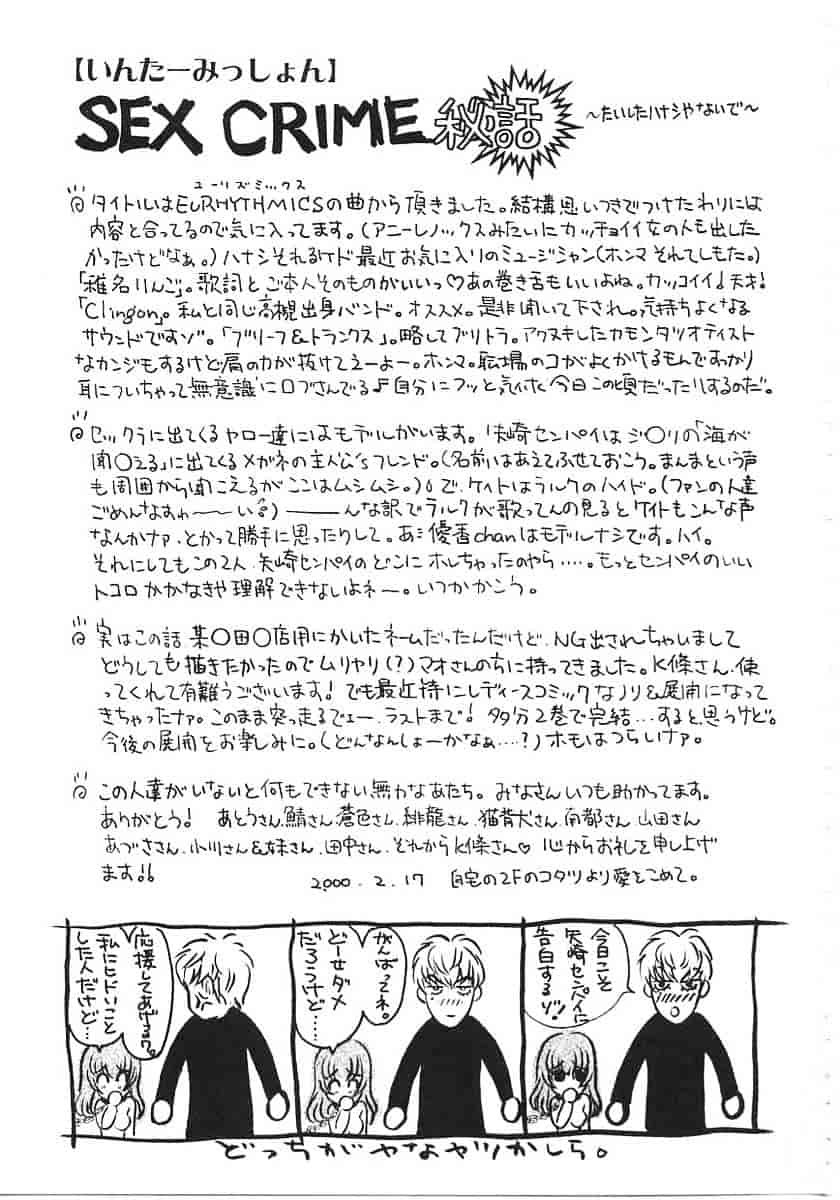 【いんたーみっしょん】
SEX CRIME 秘話
～たいしたハナシやないで～
ユーリズミックス
タイトルはEURHYTHMICSの曲から頂きました。結構思いつきでつけたわりには
内容と合ってるので気に入ってます。(アニーレノックスみたいにカッチョイイ女の人も出した
かったけどなぁ。)ハナシそれるケド最近お気に入りのミュージシャン(ホンマそれてしもた。)
「椎名りんご」。歌詞とご本人そのものがいいっ♡あの巻き舌もいいよね。カッコイイ♩天才!
「Clingon」。私と同じ高槻出身バンド。オススメ。是非聞いて下され。気持ちよくなる
サウンドですゾ。「ブリーフ&トランクス」。略してブリトラ。アクヌキしたカモンタツオテイスト
なカンジもするけど肩の力が抜けてえーよー。ホンマ。職場のコがよくかけるもんですっかり
耳についちゃって無意識に口ずさんでる♬自分にフッと気付く今日この頃だったりするのだ。
セックラに出てくるヤロー達にはモデルがいます。矢崎センパイはジ〇リの「海が
聞〇える」に出てくるメガネの主人公'sフレンド。(名前はあえてふせておこう。まんまという声
も周囲から聞こえるがここはムシムシ。)で、ケイトはラルクのハイド。(ファンの人達
ごめんなすわ～～い)―――んな訳でラルクが歌ってんの見るとケイトもこんな声
なんかナァ、とかって勝手に思ったりして。あ、優香chanはモデルナシです。ハイ。
それにしてもこの2人、矢崎センパイのどこにホレちゃったのやら……。もっとセンパイのいい
トコロかかなきゃ理解できないよネー。いつかかこう。
実はこの話某〇田〇店用にかいたネームだったんだけど、NG出されちゃいまして
どうしても描きたかったのでムリヤリ(?)マオさんのちに持ってきました。K條さん、使
ってくれて有難うございます!でも最近特にレディースコミックなノリ&展開になって
きちゃったナァ。このまま突っ走るでェー、ラストまで!多分2巻で完結…すると思うけど。
今後の展開をお楽しみに。(どんなんしょーかなぁ…?)ホモはつらいナァ。
この人達がいないと何もできない無力なあたち。みなさんいつも助かってます。
ありがとう! あとうさん、鯖さん、蒼色さん、緋龍さん、猫背犬さん、南都さん、山田さん
あづささん、小川さん&妹さん、田中さん、それからK條さん♡ 心からお礼を申し上げ
ます!!
2000.2.17 自宅の2Fのコタツより愛をこめて。
今日こそ
矢崎センパイに
告白するゾ!
がんばってネ。
どーせダメ
だろうけど…
応援してあげるワ。
私にヒドいこと
した人だけど…
どっちがヤなヤツかしら。